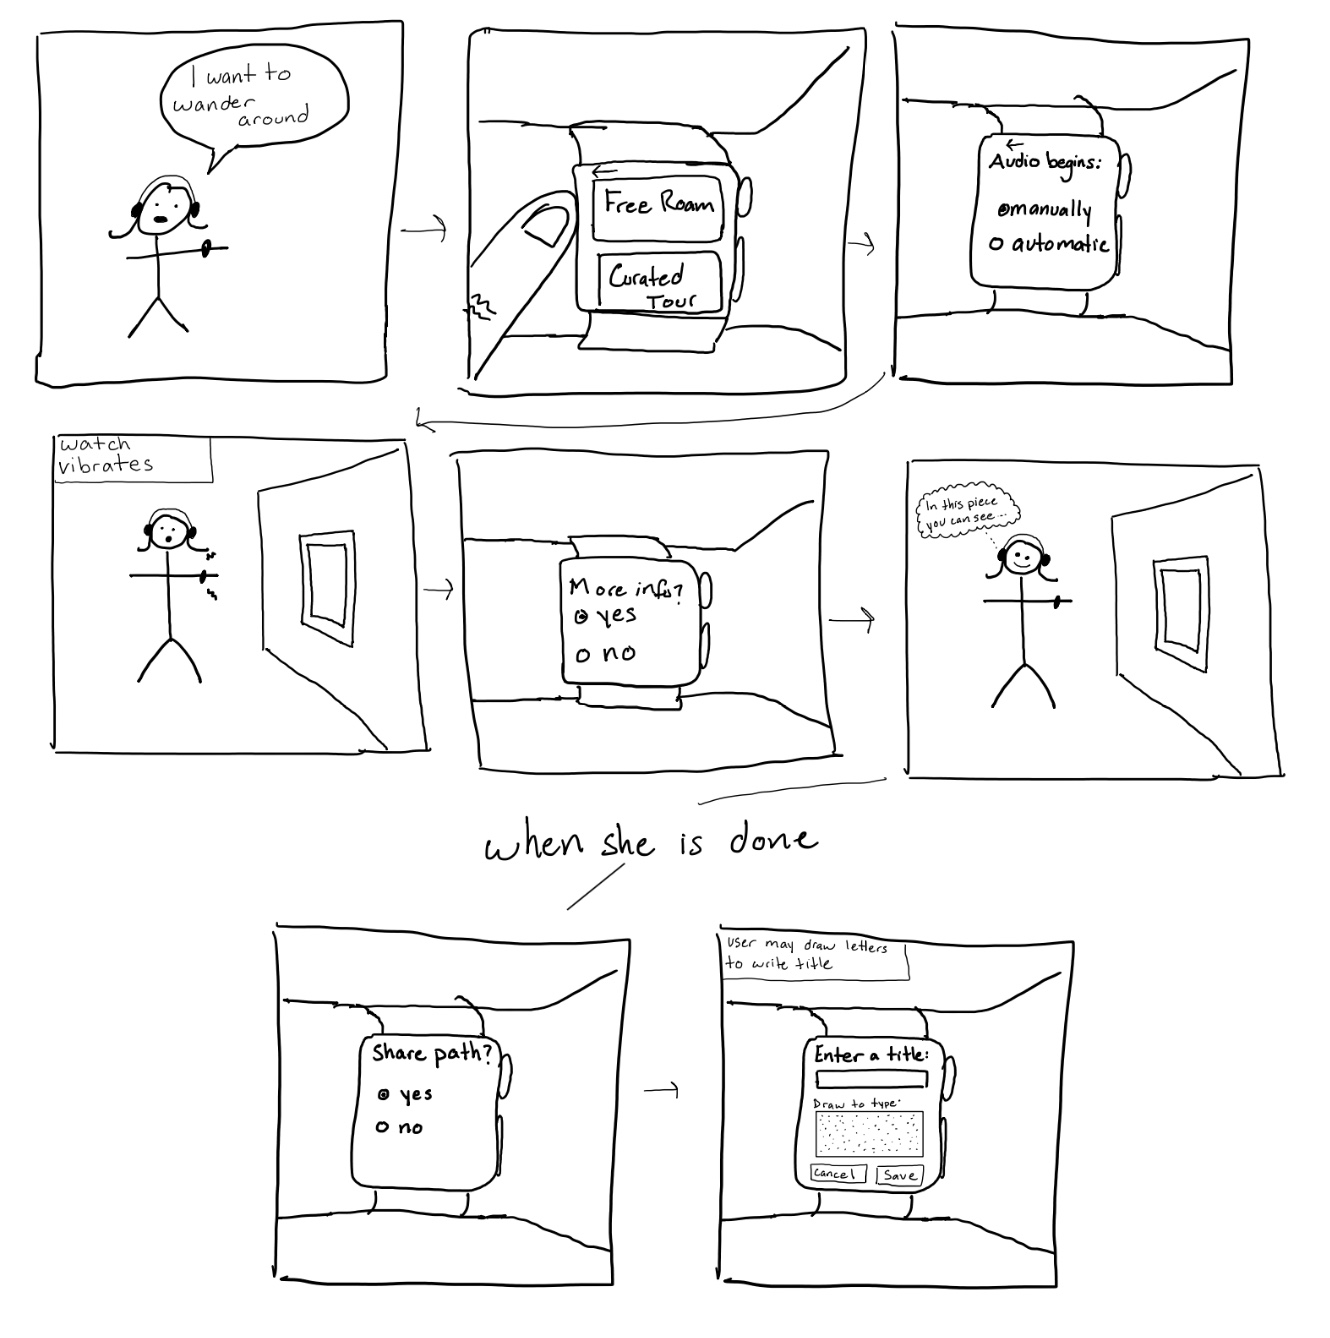 I want to
wander
around
Free Roam
Curated
Tour
Audio begins:
manually
automatic
watch
vibrates
More info?
yes
no
In this piece
you can see...
when she is done
Share path?
yes
no
user may draw letters
to write title
Enter a title:
Draw to type:
Cancel
Save